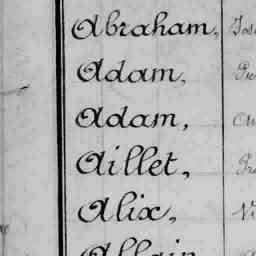 Abraham,
Adam,
Adam,
Aillet,
Alix,
Allain